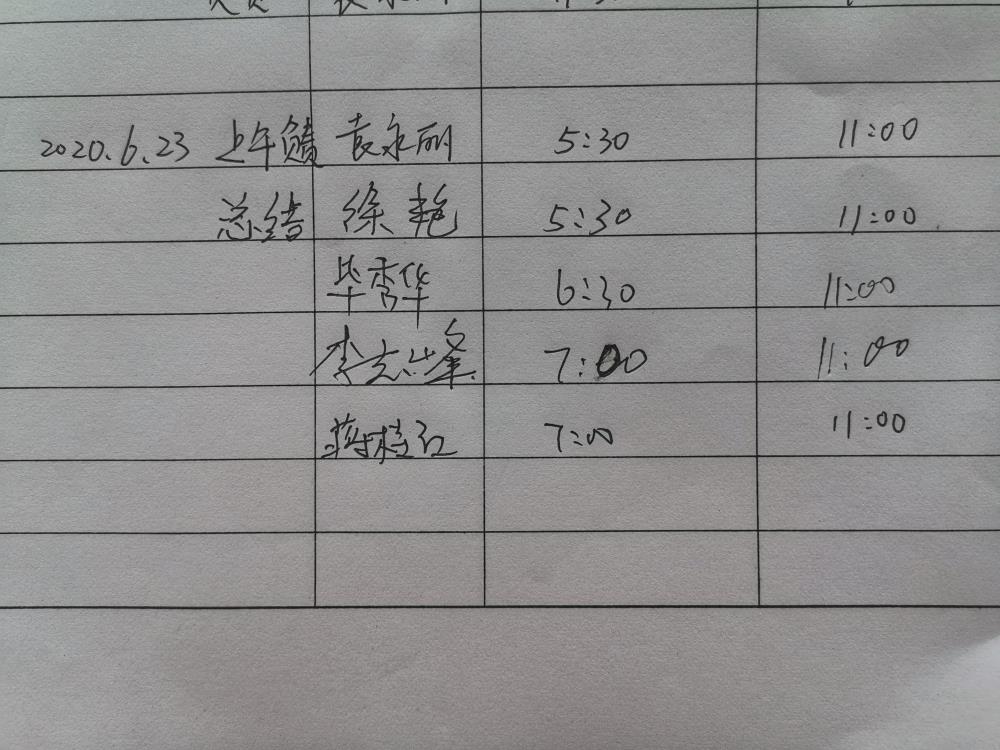 2020.6.23 上午 袁永丽 5:30 11:00
总结 徐艳 5:30 11:00
毕秀华 6:30 11:00
李志峰 7:00 11:00
蒋桂红 7:00 11:00